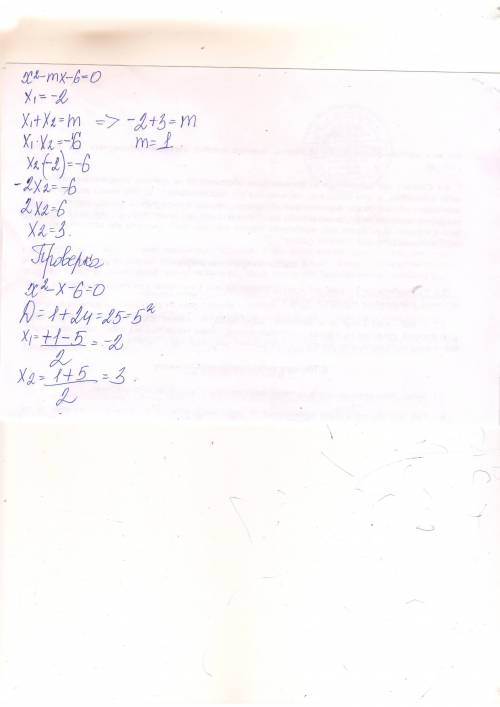 x²-mx-6=0
x₁=-2
x₁+x₂=m => -2+3=m
x₁·x₂=-6 m=1
x₂(-2)=-6
-2x₂=-6
2x₂=6
x₂=3.
Проверка
x²-x-6=0
D=1+24=25=5²
x₁=+1-5/2=-2
x₂=1+5/2=3.